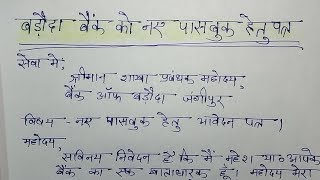 बड़ौदा बैंक को नए पासबुक हेतु पत्र
सेवा में,
श्रीमान शाखा प्रबंधक महोदय,
बैंक ऑफ बड़ौदा जंगीपुर
विषय - नए पासबुक हेतु आवेदन पत्र।
महोदय,
सविनय निवेदन है कि मैं महेश या० आपके
बैंक का एक खाताधारक हूँ। महोदय मेरा